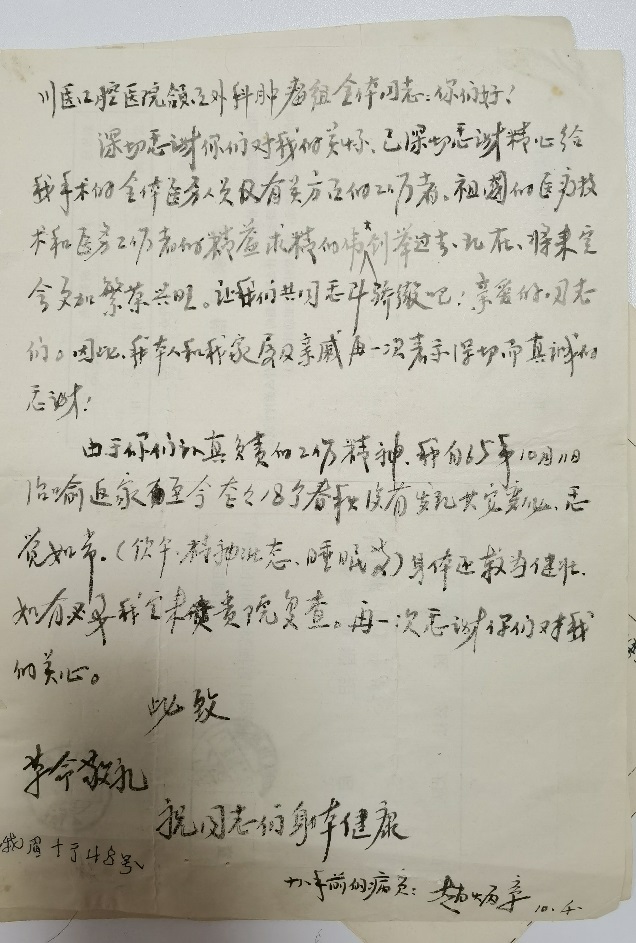 川医口腔医院颌面外科肿瘤组全体同志:你们好!
深切感谢你们对我的关怀、已深切感谢精心给
我手术的全体医务人员及有关方面的工作者。祖国的医疗技
术和医务工作者的精益求精的伟大创举过去、现在、将来定
会更加繁荣兴旺。让我们共同感到骄傲吧!亲爱的同志
们。因此、我本人和我家属及亲戚再一次表示深切而真诚的
感谢!
由于你们认真负责的工作精神、我自65年10月11日
治喻返家至今 18个春秋没有发现其它变化、感
觉如常。(饮午、精神状态、睡眠等)身体还较为健壮、
如有必要我定来贵院复查。再一次感谢你们对我
的关心。
此致
革命敬礼
祝同志们身体健康
峨眉十字48号
十八年前的病员:赵炳章 10.4.